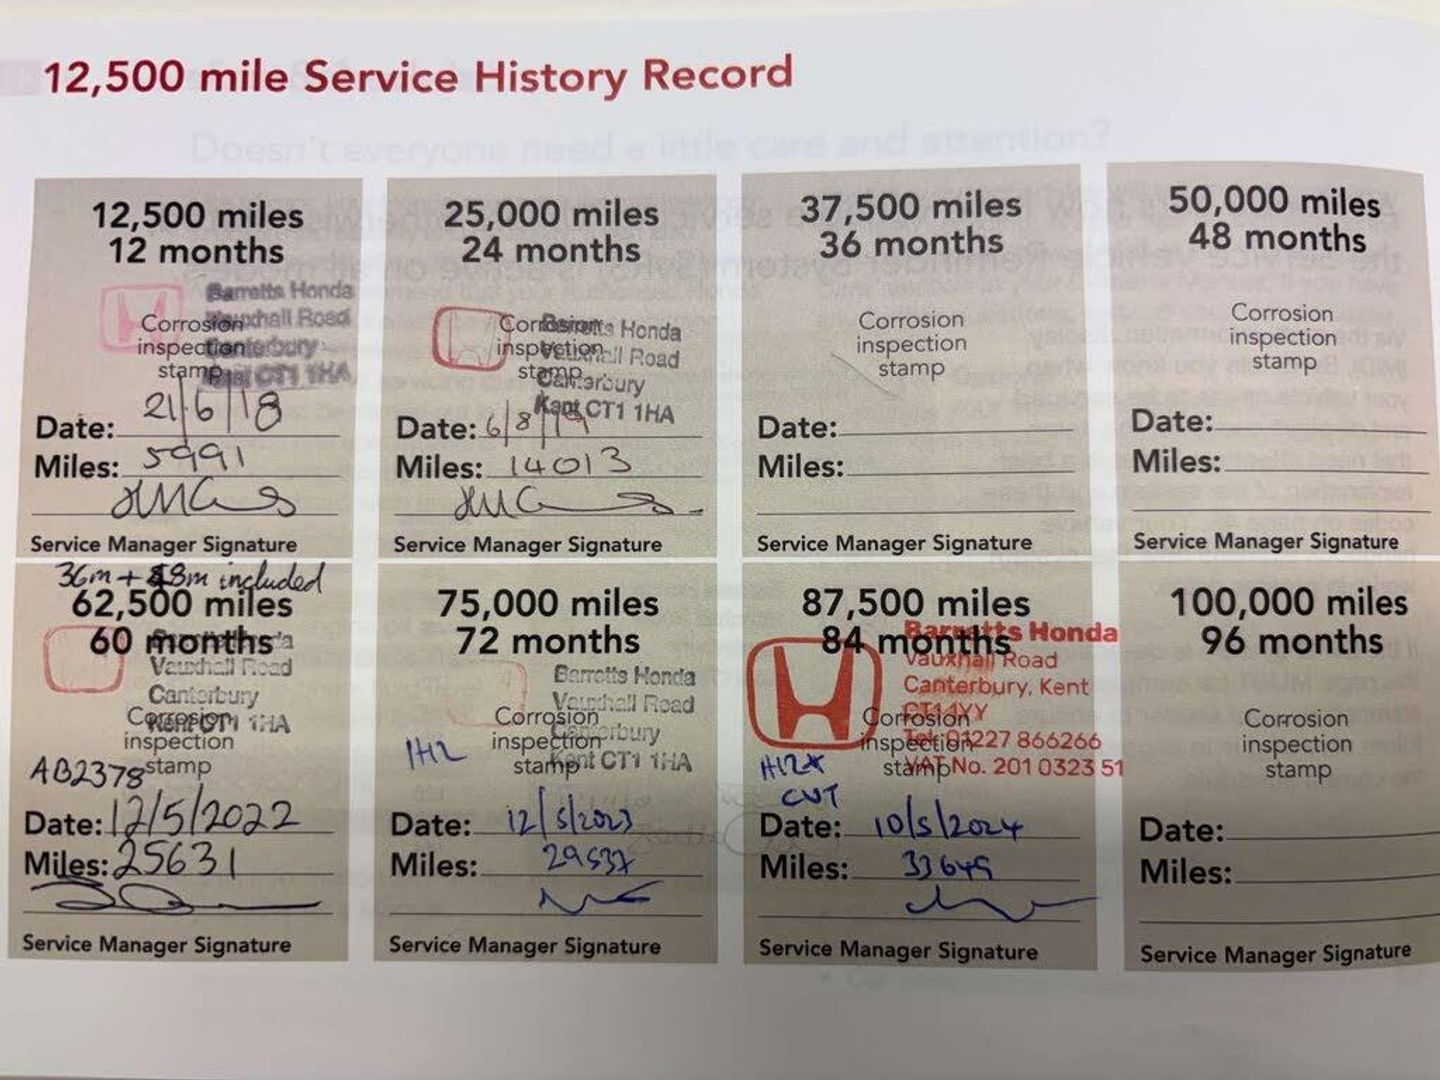 12,500 mile Service History Record
Doesn't everyone need a little care and attention?
12,500 miles
12 months
Barretts Honda
Vauxhall Road
Canterbury
Kent CT1 1HA
Corrosion
inspection
stamp
Date: 21/6/18
Miles: 5991
Service Manager Signature
25,000 miles
24 months
Barretts Honda
Vauxhall Road
Canterbury
Kent CT1 1HA
Corrosion
inspection
stamp
Date: 6/8/19
Miles: 14013
Service Manager Signature
37,500 miles
36 months
Corrosion
inspection
stamp
Date:
Miles:
Service Manager Signature
50,000 miles
48 months
Corrosion
inspection
stamp
Date:
Miles:
Service Manager Signature
36m + 48m included
62,500 miles
60 months
Barretts Honda
Vauxhall Road
Canterbury
Kent CT1 1HA
Corrosion
inspection
stamp
AB2378
Date: 12/5/2022
Miles: 25631
Service Manager Signature
75,000 miles
72 months
Barretts Honda
Vauxhall Road
Canterbury
Kent CT1 1HA
Corrosion
inspection
stamp
Date: 12/5/2023
Miles: 29537
Service Manager Signature
87,500 miles
84 months
Barretts Honda
Vauxhall Road
Canterbury, Kent
CT1 4YY
Tel: 01227 866266
VAT No. 201 0323 51
Corrosion
inspection
stamp
Date: 10/5/2024
Miles: 33649
Service Manager Signature
100,000 miles
96 months
Corrosion
inspection
stamp
Date:
Miles:
Service Manager Signature